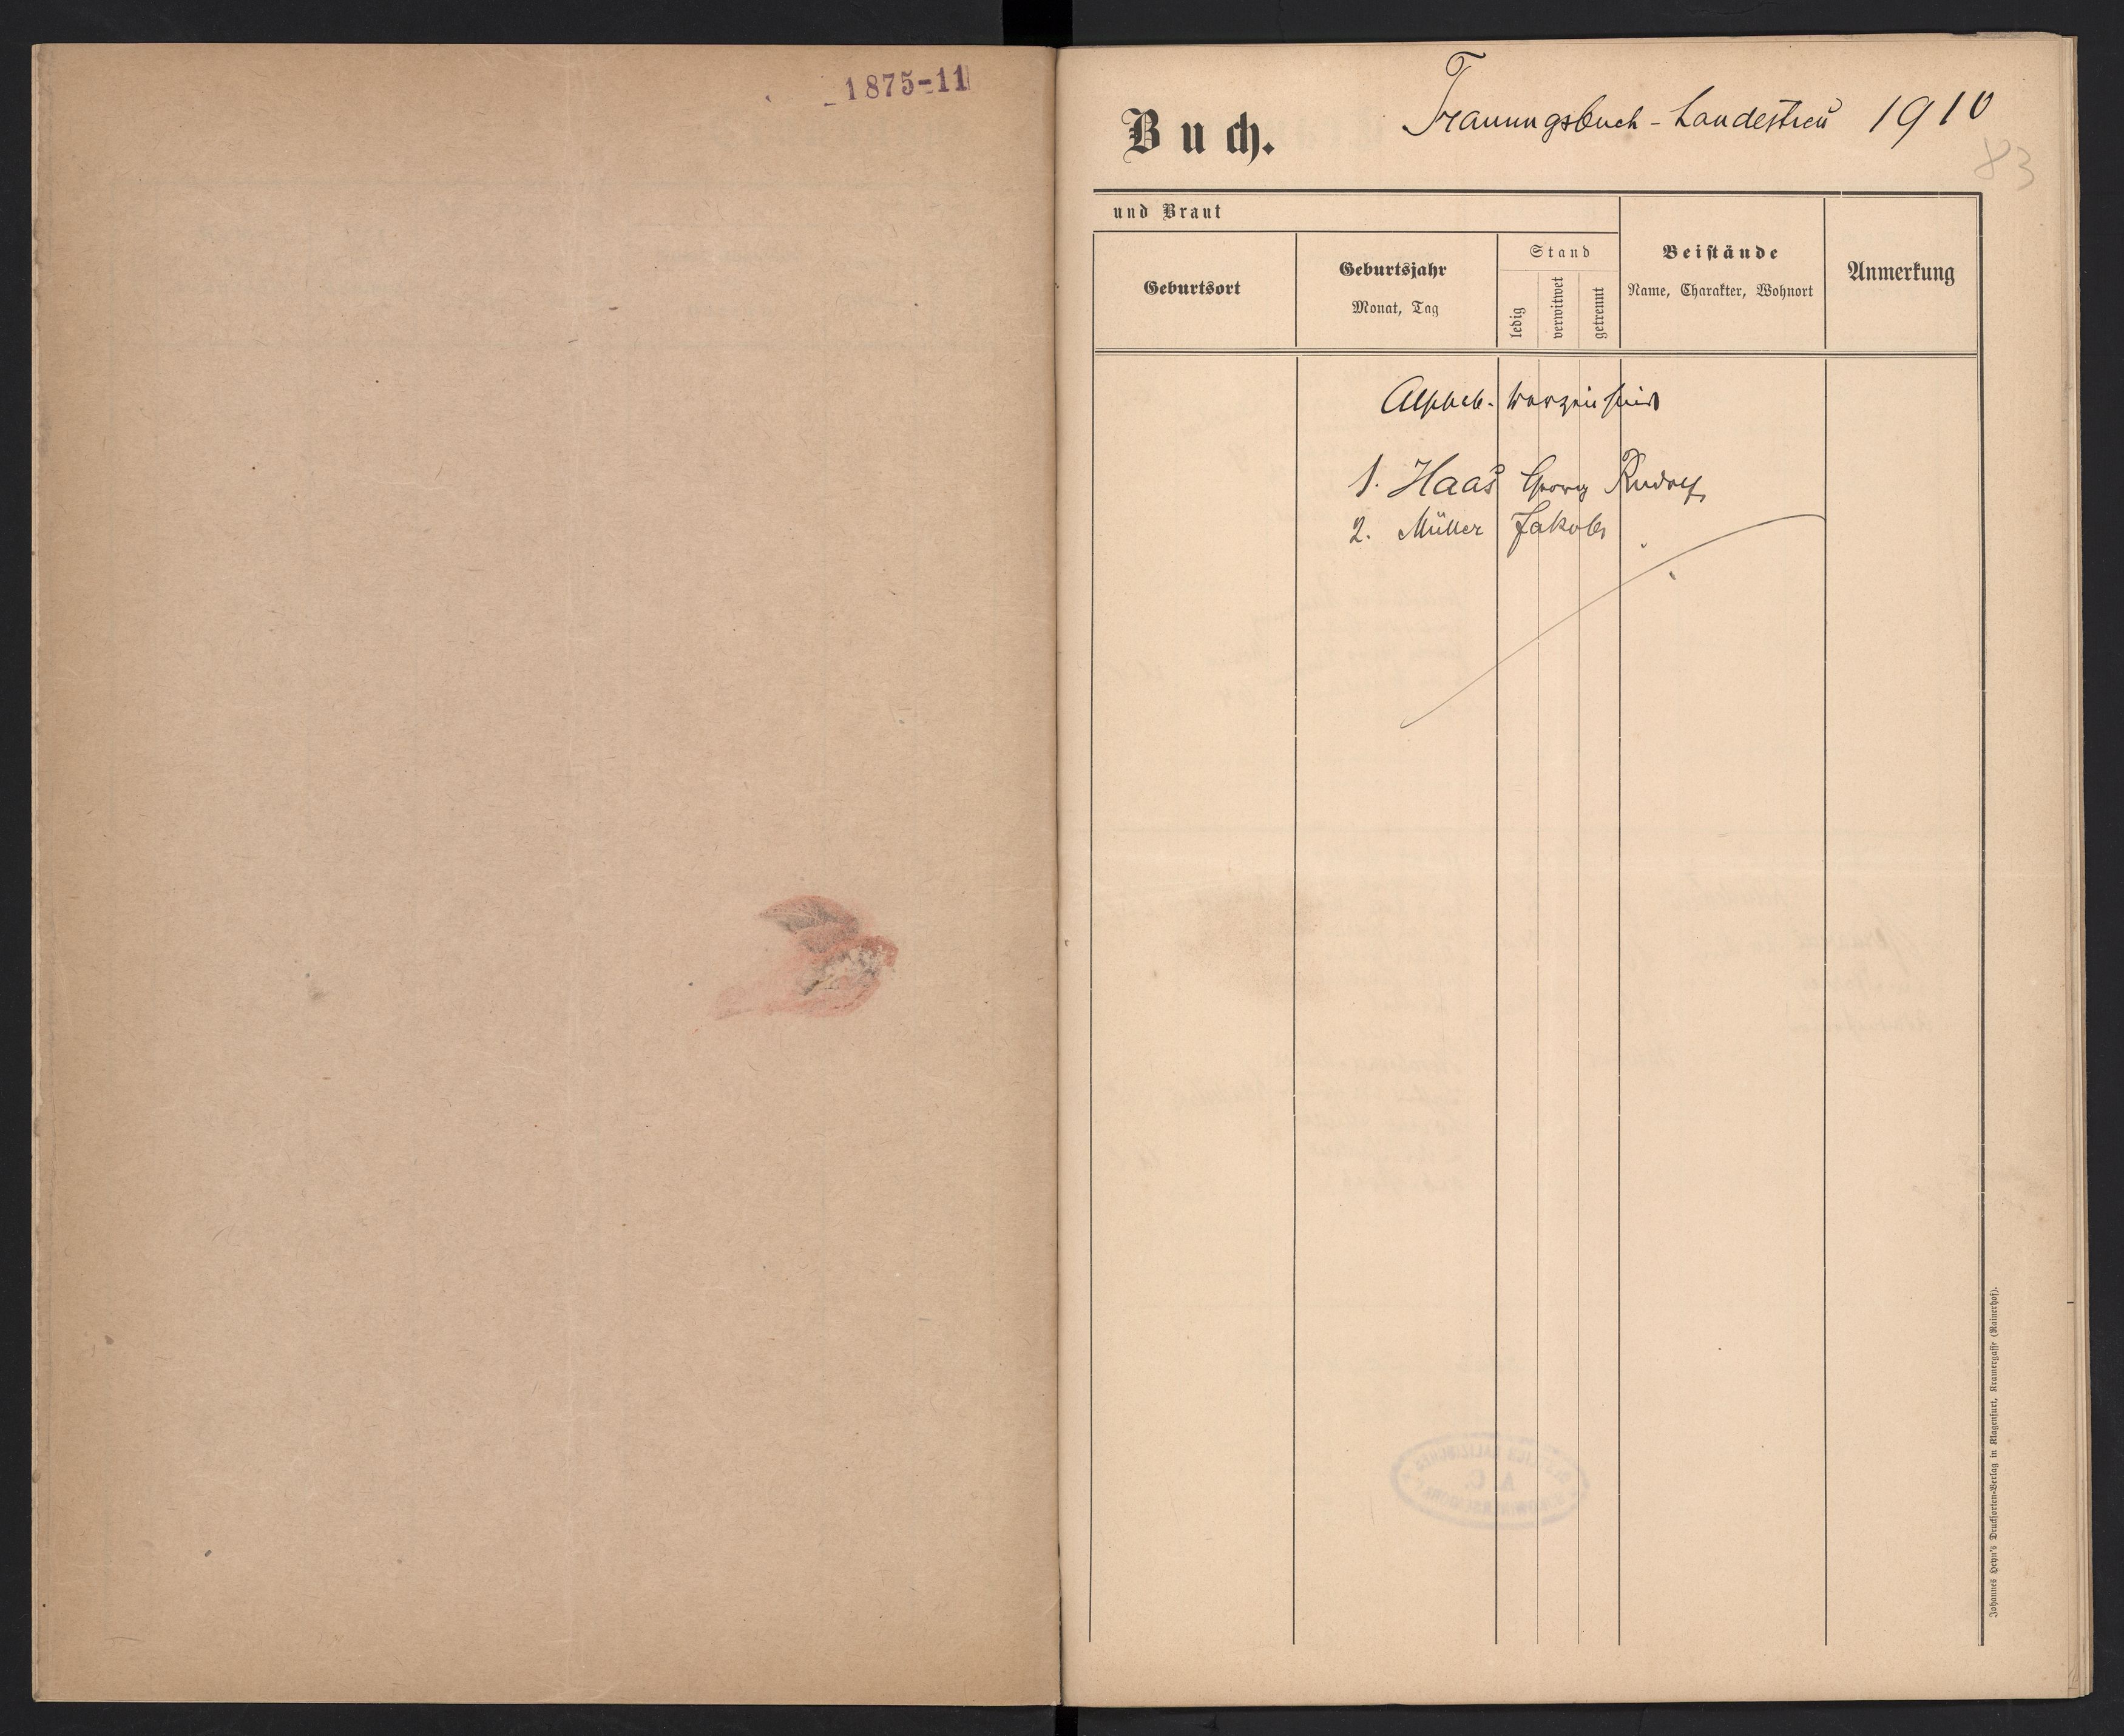 1875-11
Buch.
Trauungsbuch - Landestreu 1910
83
und Braut
Geburtsort
Geburtsjahr
Monat, Tag
Stand
ledig
verwitwet
getrennt
Beistände
Name, Charakter, Wohnort
Anmerkung
Alphab. Verzeichnis
1. Haas Georg Rudolf
2. Müller Jakob
Johannes Heyn's Drucksorten-Verlag in Klagenfurt, Kramergasse (Rainerhof).